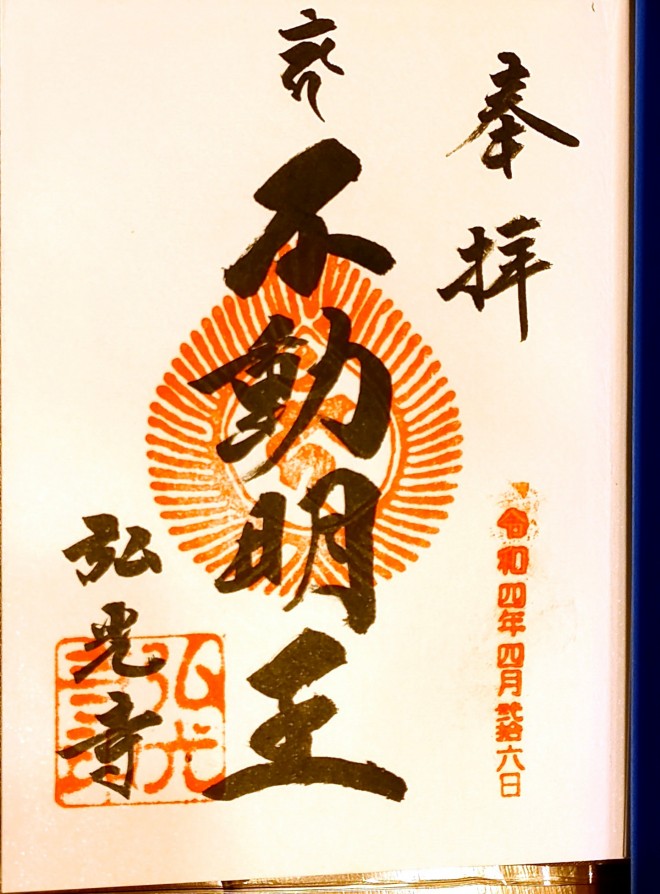 奉拝
令和四年四月弐拾六日
不動明王
弘光寺
弘光